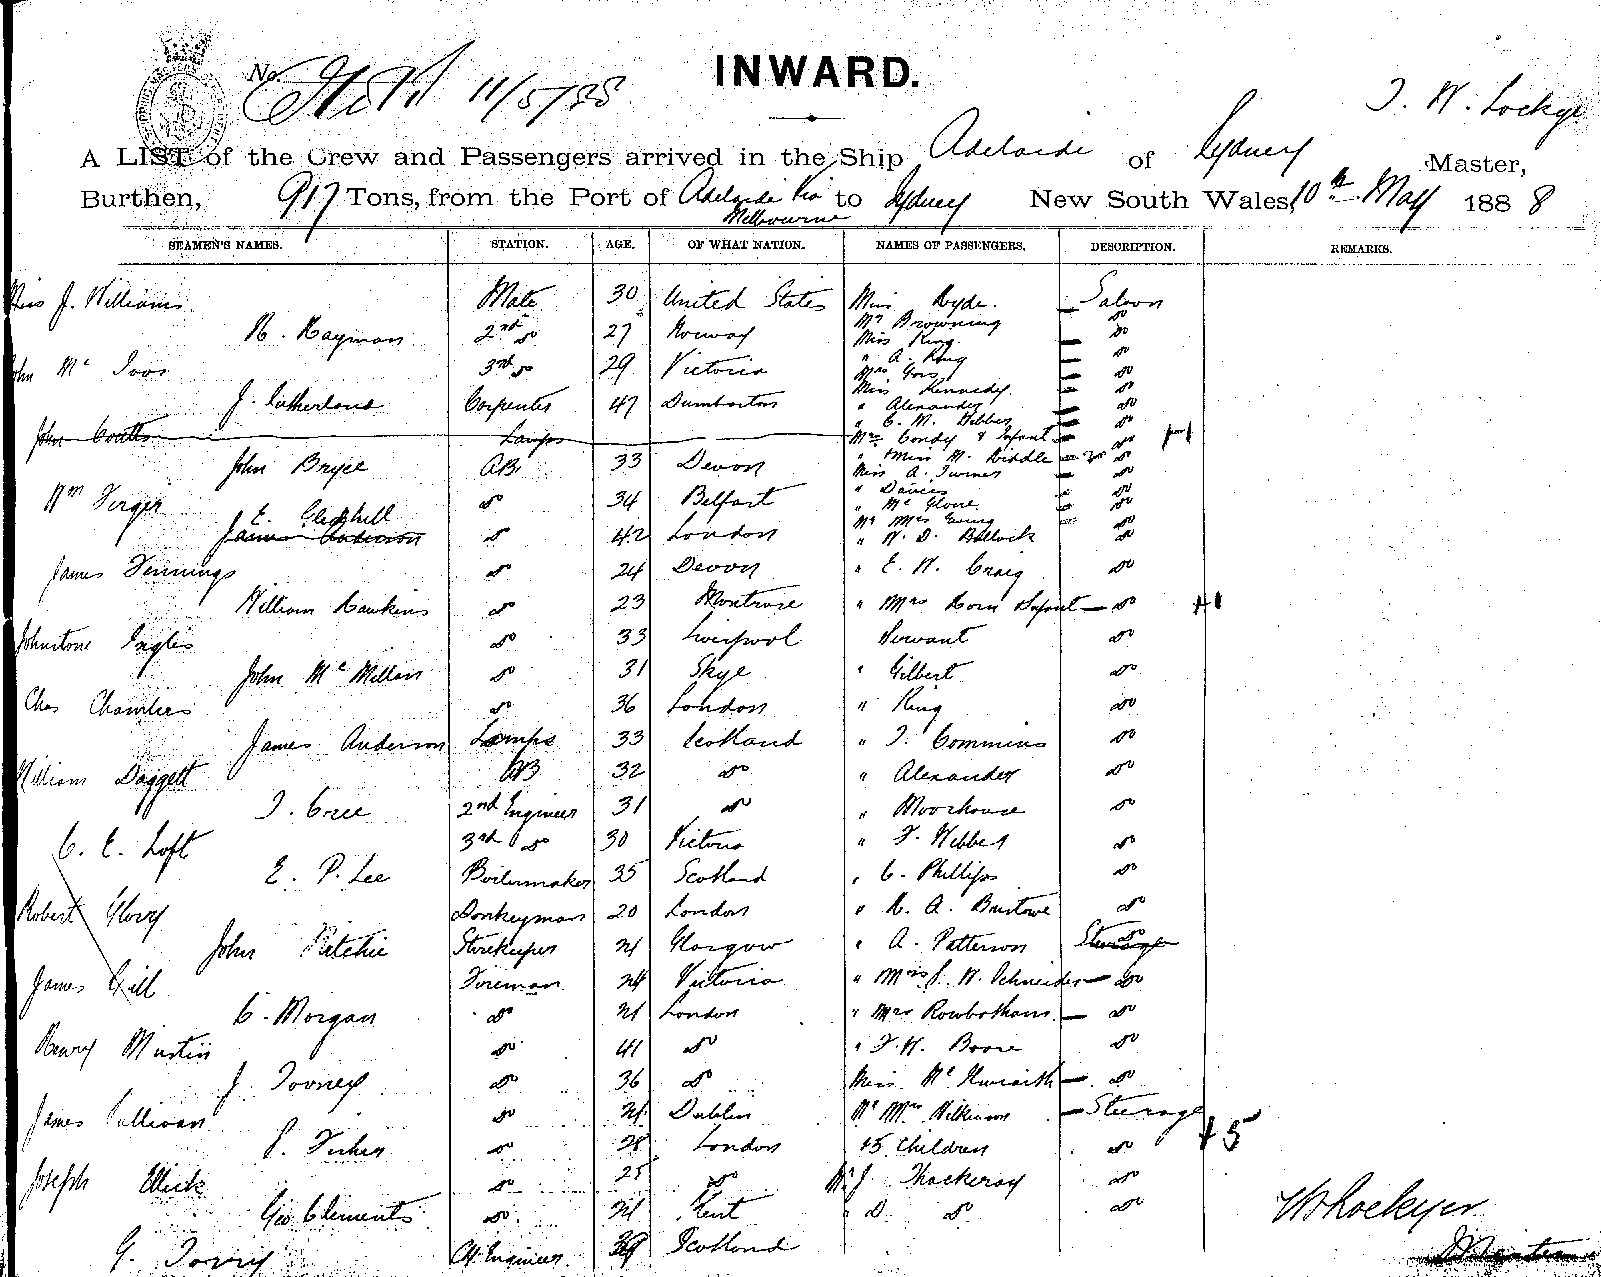 INWARD.
No. 11/5/88
T. W. Lockye
A LIST of the Crew and Passengers arrived in the Ship Adelaide of Sydney Master,
Burthen, 917 Tons, from the Port of Adelaide Via Melbourne to Sydney New South Wales, 10th May 1888
SEAMEN'S NAMES. STATION. AGE. OF WHAT NATION. NAMES OF PASSENGERS. DESCRIPTION. REMARKS.
J. Williams Mate 30 United States Miss Hyde. Saloon
Mr Browning do
H. Hayman 2nd do 27 Norway Miss King do
" A. King do
John Mc 3rd do 29 Victoria Mrs do
Miss Kennedy do
J. Sutherland Carpenter 47 Dumbarton " Alexander do
" C. M. Hebber do
John Coutts Lamps Mrs Condy & Infant do
John Bryce AB. 33 Devon " Miss M. Riddle do
Miss A. Turner do
Wm do 34 Belfast " Davies do
" Mc do
E. Gledhill Mr Mrs do
James Anderson do 42 London " W. D. Bullock do
James Jennings do 24 Devon " E. W. Craig do
William Hawkins do 23 Montrose " Mrs Horn Infant do +1
Johnstone Ingles do 33 Liverpool Servant do
John McMillan do 31 Skye " Gilbert do
Chas Chambers do 36 London " King do
James Anderson Lamps 33 Scotland " T. Commins do
William Daggett AB 32 do " Alexander do
T. Cree 2nd Engineer 31 do " Moorhouse do
C. E. Loft 3rd do 30 Victoria " F. Webber do
E. P. Lee Boilermaker 35 Scotland " C. Phillips do
Robert Glory Donkeyman 20 London " H. A. Bristowe do
John Ritchie Storekeeper 21 Glasgow " A. Patterson Steerage do
James Gill Fireman 24 Victoria " Mrs J. W. Schneider do
C. Morgan do 21 London " Mrs Rowbotham do
Henry Mustin do 41 do " F. W. Boore do
J. Tooney do 36 do Miss McIlwraith do
James Sullivan do 21 Dublin Mr Mrs Wilkinson Steerage
P. Fisher do 28 London +5 Children do +5
Joseph do 25 do Mr J. Thackeray do
Geo Clements do 21 Kent " D. do do
G. Torry Ch Engineer 39 Scotland
Lockyer